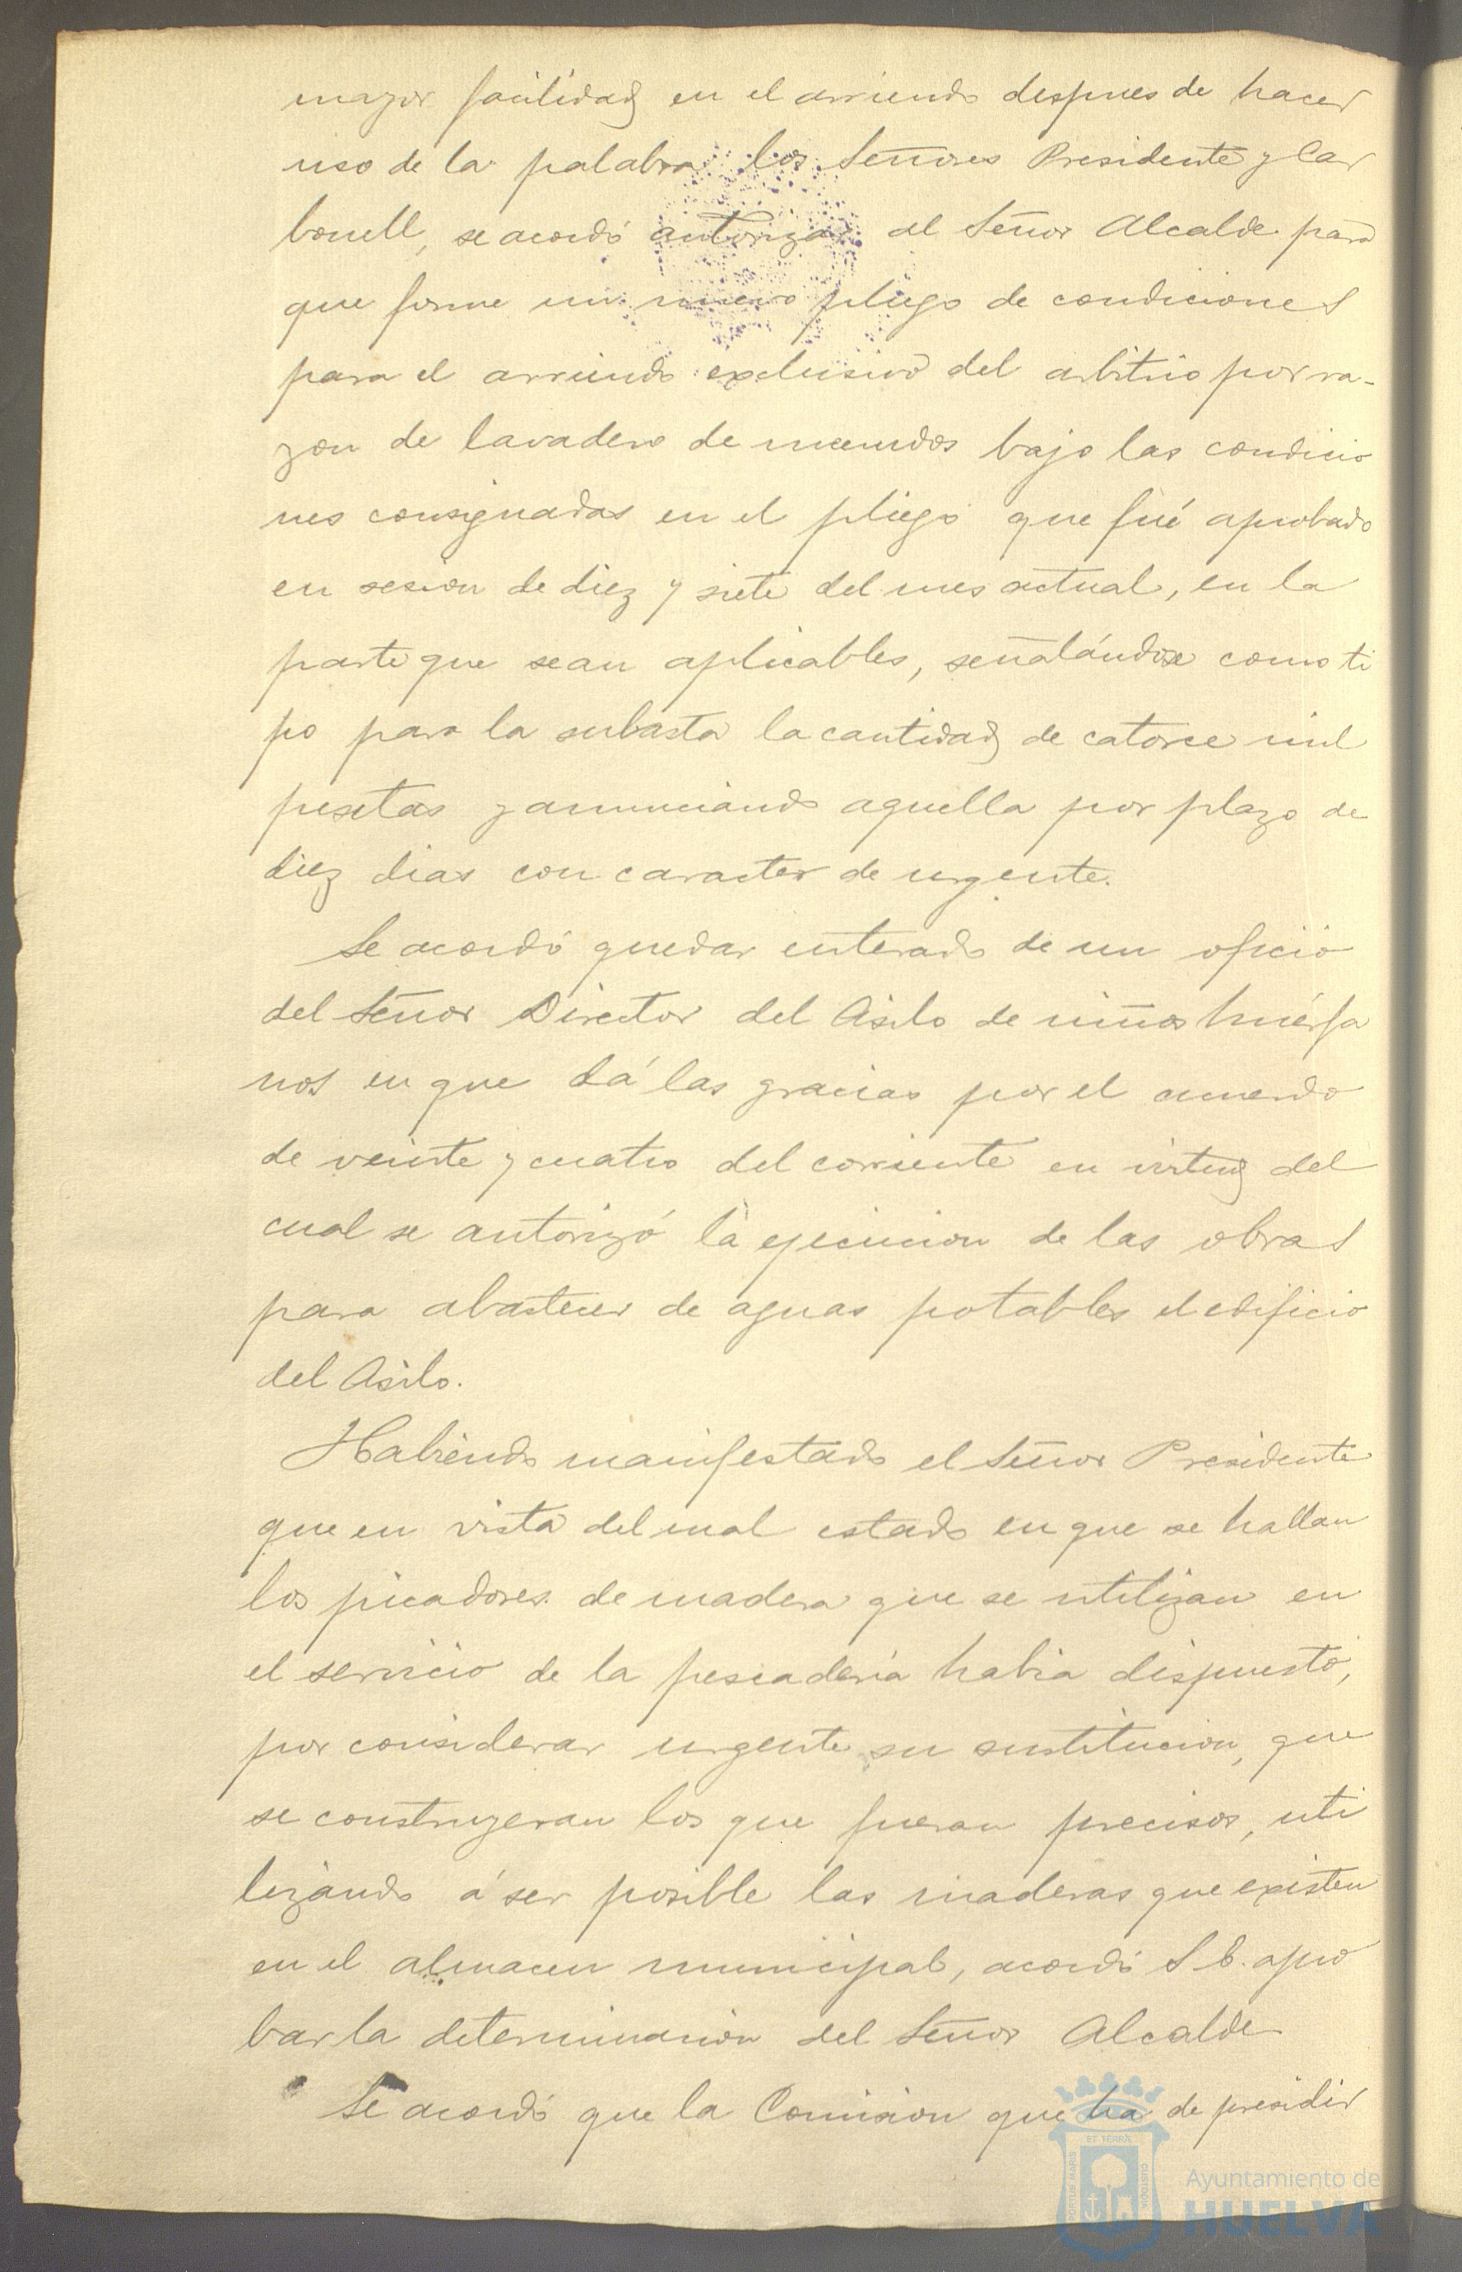 mayor facilidad en el arriendo despues de hacer
uso de la palabra los Señores Presidente y Car
bonell, se acordó autorizar al Señor Alcalde para
que forme un nuevo pliego de condiciones
para el arriendo exclusivo del arbitrio por ra-
zon de lavadero de menudos bajo las condicio
nes consignadas en el pliego que fué aprobado
en sesion de diez y siete del mes actual, en la
parte que sean aplicables, señalándose como ti
po para la subasta la cantidad de catorce mil
pesetas y anunciando aquella por plazo de
diez dias con caracter de urgente.
Se acordó quedar enterado de un oficio
del Señor Director del Asilo de niños huérfa
nos en que dá las gracias por el acuerdo
de veinte y cuatro del corriente en virtud del
cual se autorizó la ejecucion de las obras
para abastecer de aguas potables el edificio
del Asilo.
Habiendo manifestado el Señor Presidente
que en vista del mal estado en que se hallan
los picadores de madera que se utilizan en
el servicio de la pescaderia habia dispuesto,
por considerar urgente su sustitucion, que
se construyeran los que fueran precisos, uti
lizando á ser posible las maderas que existen
en el almacen municipal, acordó S. E. apro
bar la determinacion del Señor Alcalde
Se acordó que la Comision que ha de presidir
PORTUS MARIS
ET TERRÆ
CUSTODIA
Ayuntamiento de
HUELVA